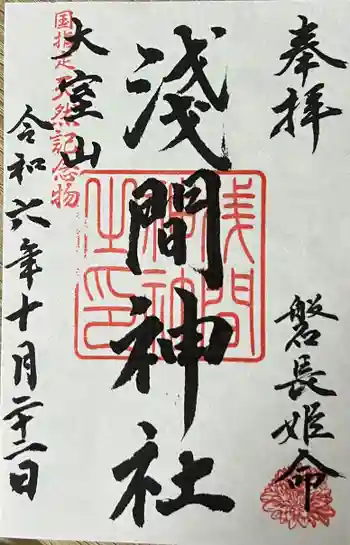 奉拝
磐長姫命
淺間神社
浅間
神社
之印
大室山
国指定天然記念物
令和六年十月二十二日